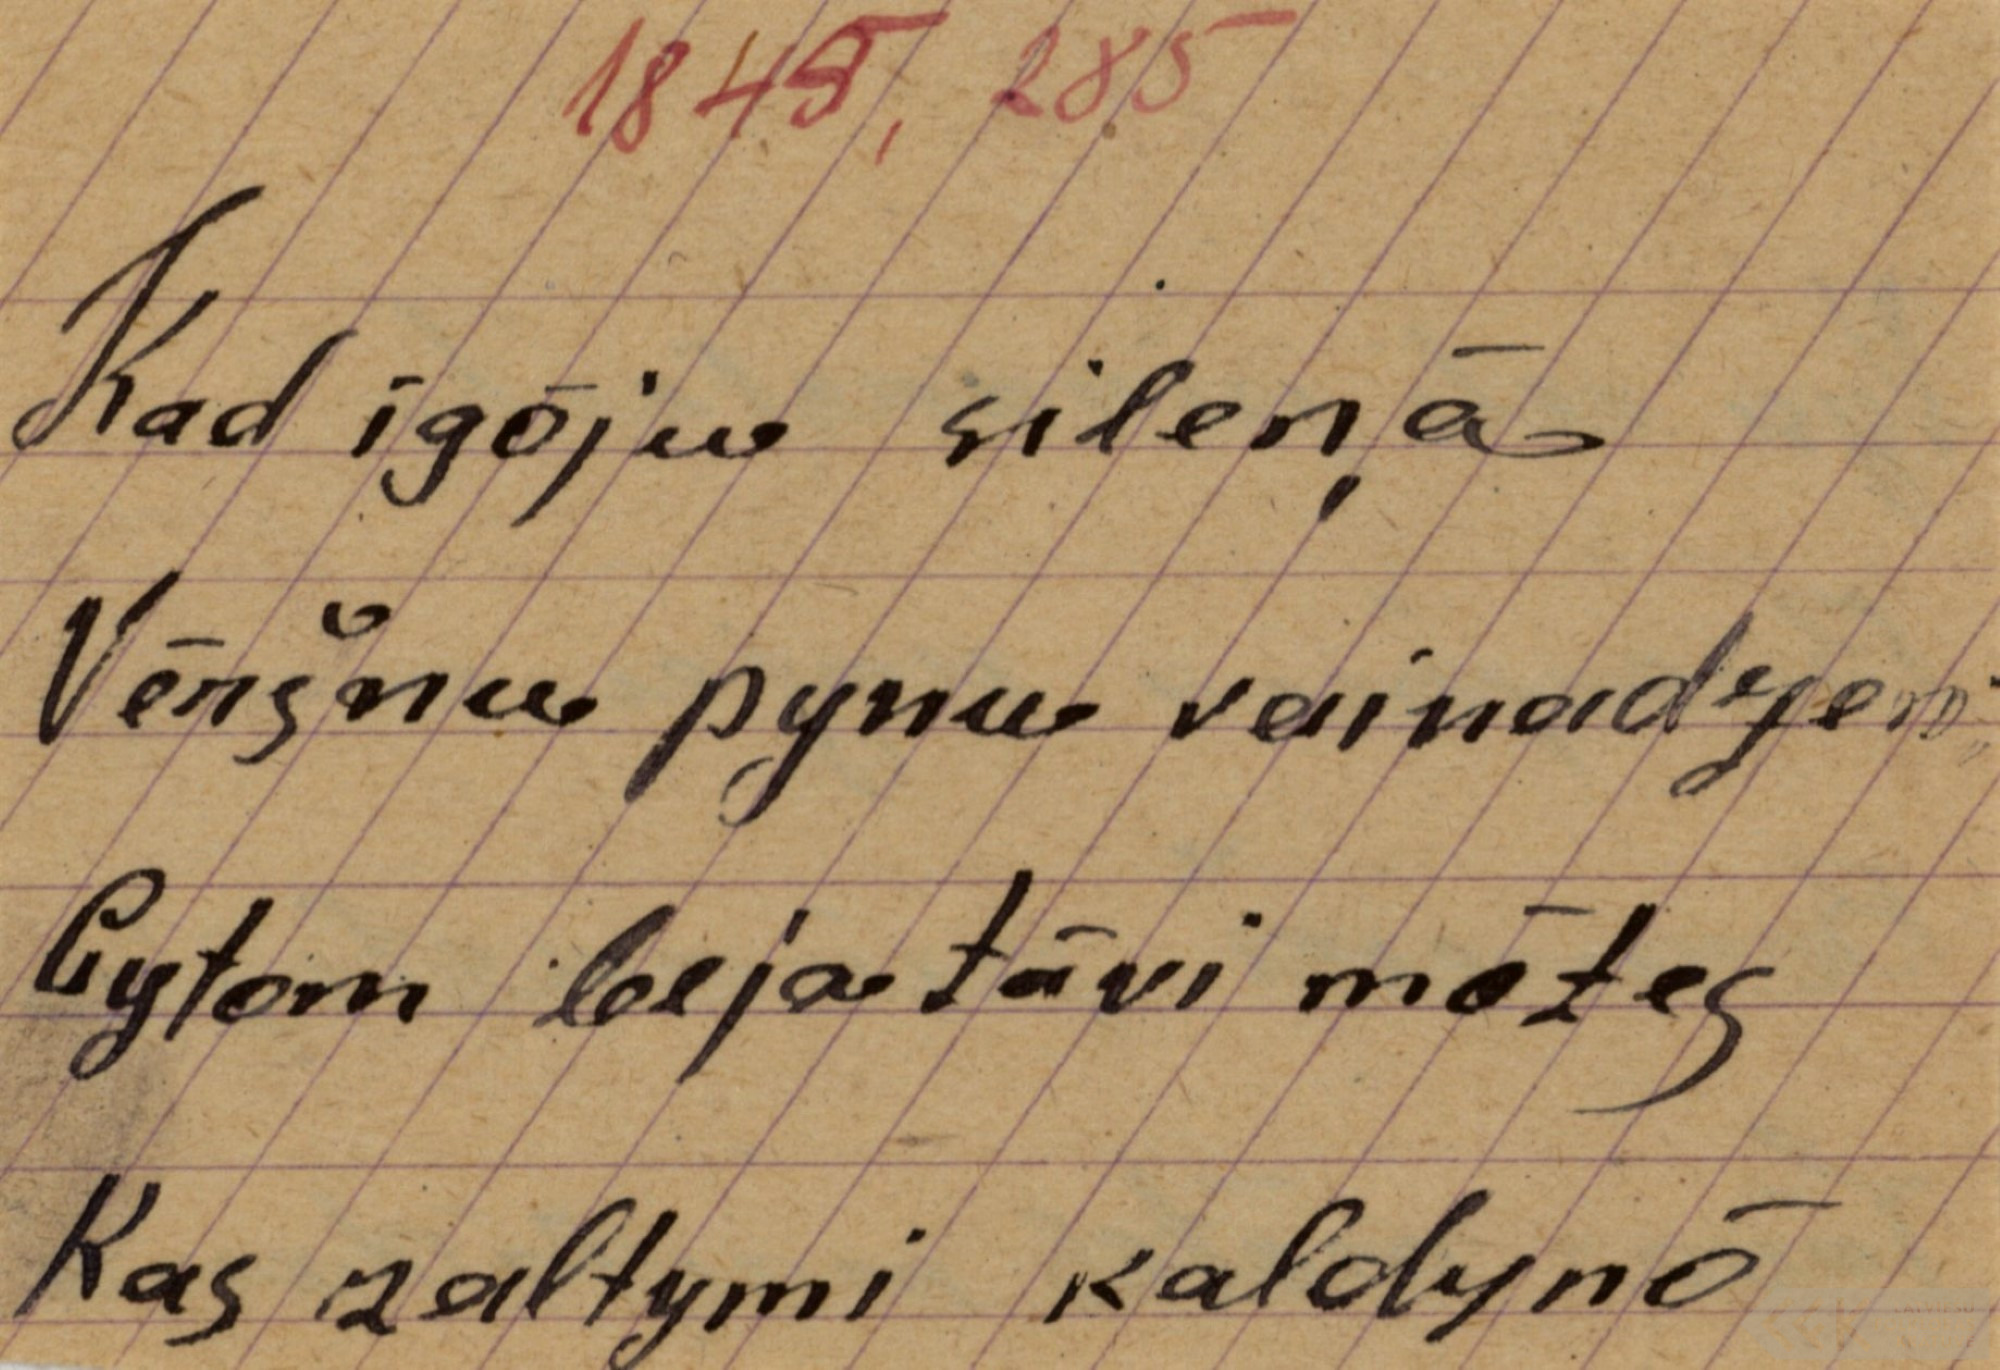 1845, 285
Kad īgōju sileņā
Vēršnu pynu vainadzen
Cytom beja tāvi mōtes
Kas zaltymi kaldynō